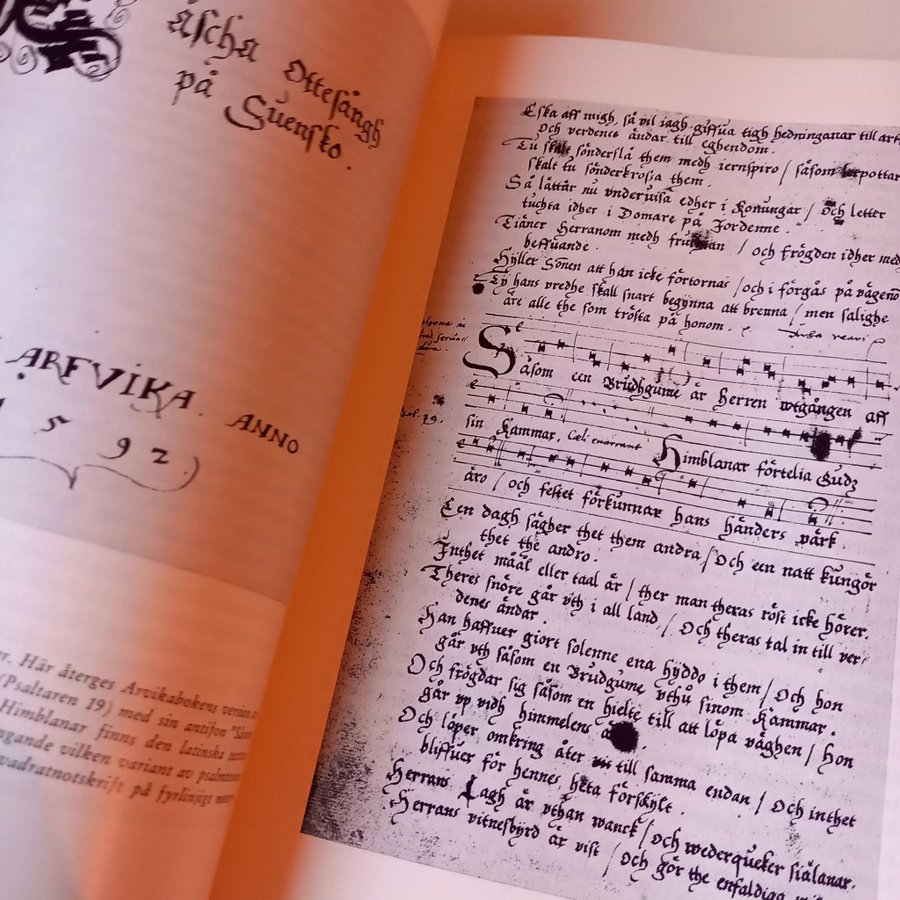 åscha Ottesångh
på Suensko.
AREVIKA. ANNO
1592.
Här återges Arvikabokens version
(Psaltaren 19) med sin antifon
Himblanar finns den latinska
vilken variant av
på fyrlinjigt
Eska aff migh, så vil iagh giffua tigh hedninganar till
Och verdenes ändar till eghendom.
Tu skalt sönderslå them medh iernspiro / såsom
skalt tu sönderkrossa them.
Så låttär nu vnderuisä edher i Konungar / Och letter
tuchta idher i Domare på Jordenne.
Tiäner Herranom medh fruchtan / och frögden idher med
beffuande.
Hyller Sonen att han icke förtornas / och i förgås på vägenō
Ty hans vredhe skall snart begynna att brenna / men salighe
äre alle the som trösta på honom.
Såsom een Brudhgume är Herren wtgången aff
sin Kammar, Cœli enarrant Himblanar förtelia Gudz
äro / och festet förkunnar hans händers värk.
Een dagh sägher thet them andra / Och een natt kungör
thet the andro.
Inthet määl eller taal är / ther man theras röst icke hörer.
Theres snöre går vth i all land / Och theras tal in till ver-
denes ändar.
Han haffuer giort solenne ena hyddo i them / Och hon
går vth såsom en Brudgume vthu sinom Kammar.
Och frögdar sig såsom en hielte till att löpa väghen / Hon
går vp vidh himmelens
Och löper omkring åter till samma endan / Och inthet
bliffuer för hennes heta förskylt.
Herrans Lagh är vthan wanck / och wederqueker siälanar.
Herrans vitnesbyrd är vist / och gör the enfaldiga